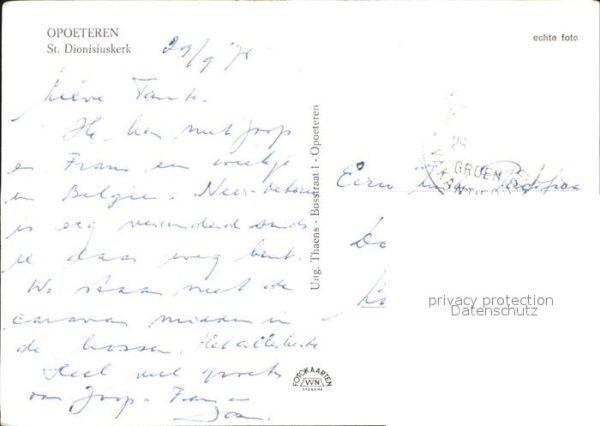 OPOETEREN
St. Dionisiuskerk
echte foto
29/9
Lieve Tante.
Ik ben met Joop
en Frans een weekje
in België. Neer-
is erg veranderd sinds
je daar weg bent.
We staan met de
caravan midden in
de bossen. Het allerbeste
Heel veel groetjes
van Joop - Frans en
Uitg. Thaens - Bosstraat 1 - Opoeteren
FOTOKAARTEN
WN
GROEN
privacy protection
Datenschutz